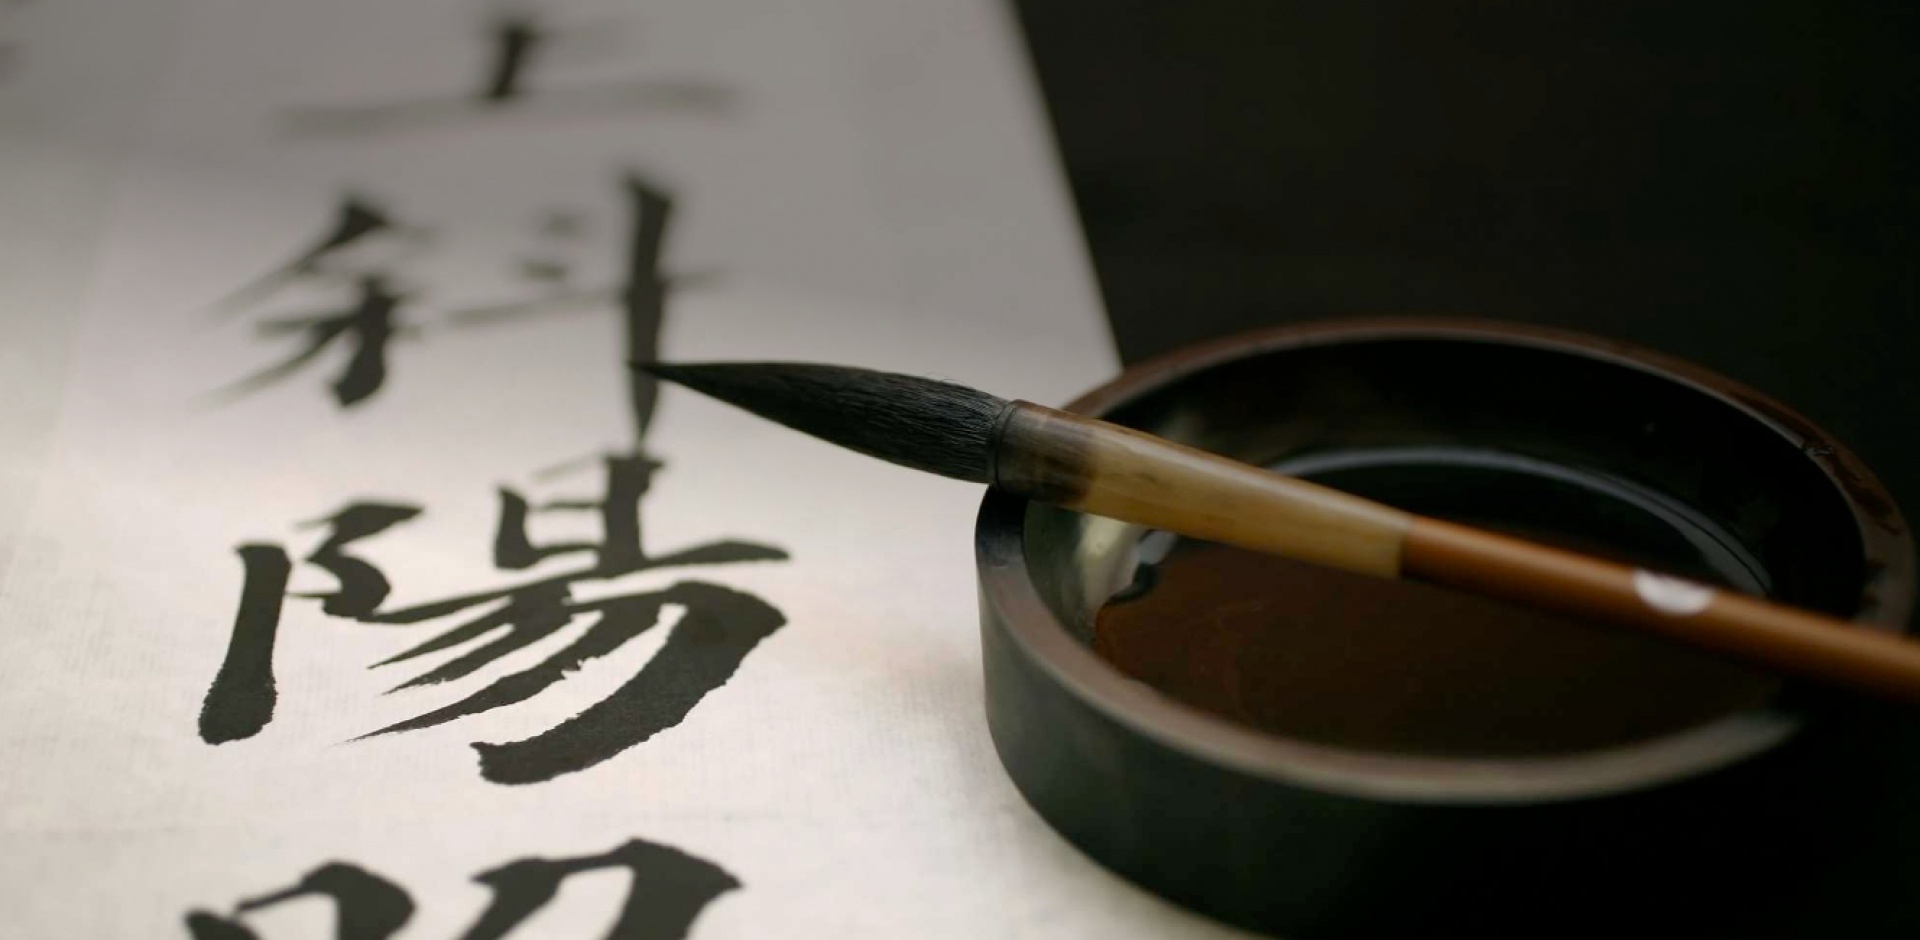 上斜陽